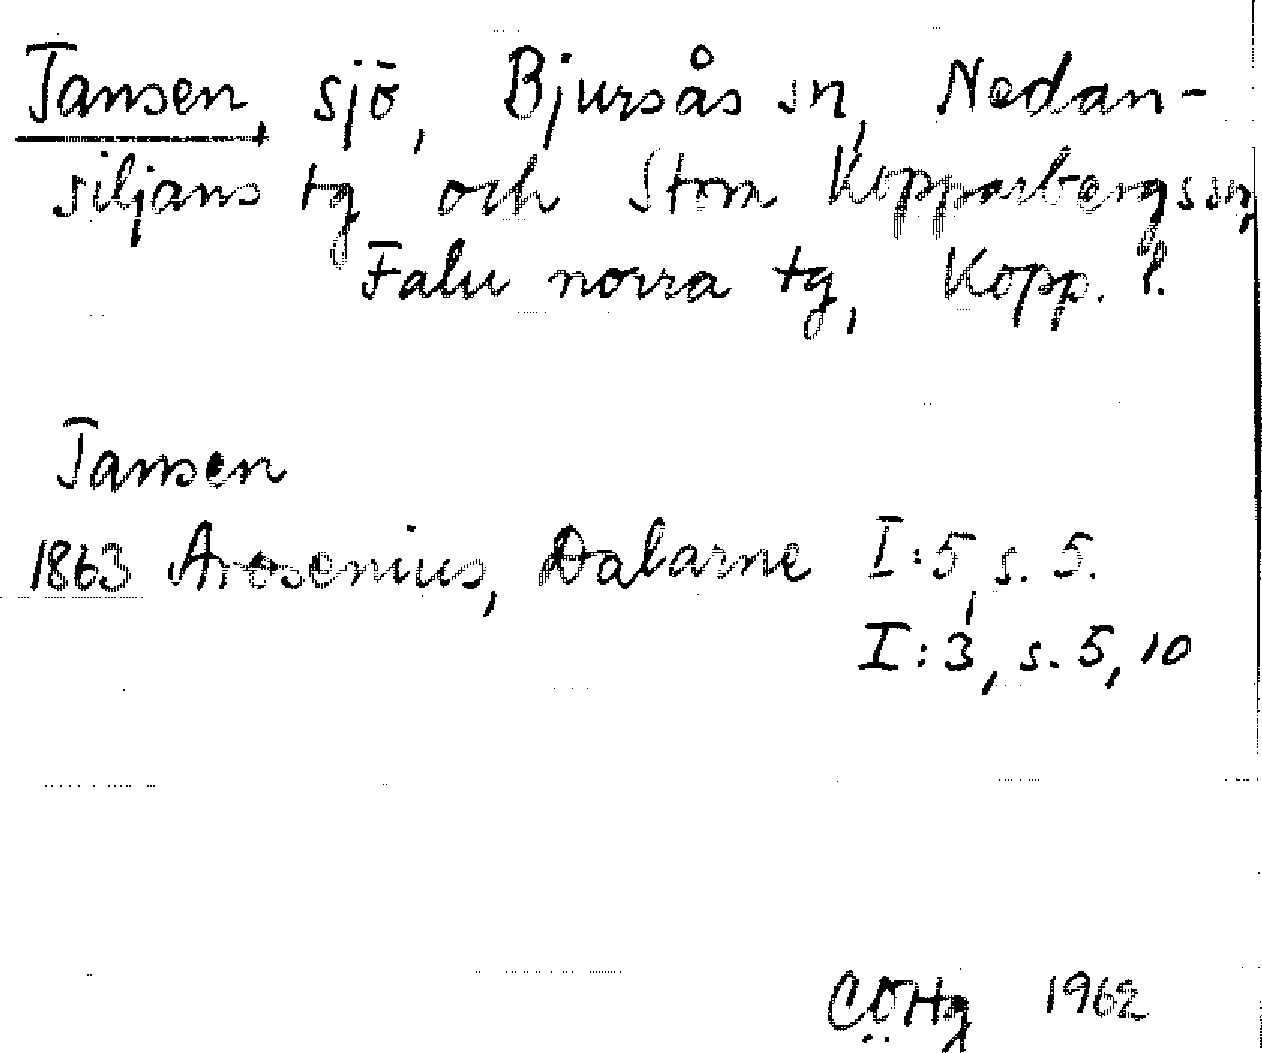 Tansen, sjö, Bjursås sn, Nedan-
siljans tg och Stora Kopparbergs sn,
Falu norra tg, Kopp. l.
Tansen
1863 Arosenius, Dalarne I:5, s. 5.
I:3, s. 5, 10
CÖHg 1962